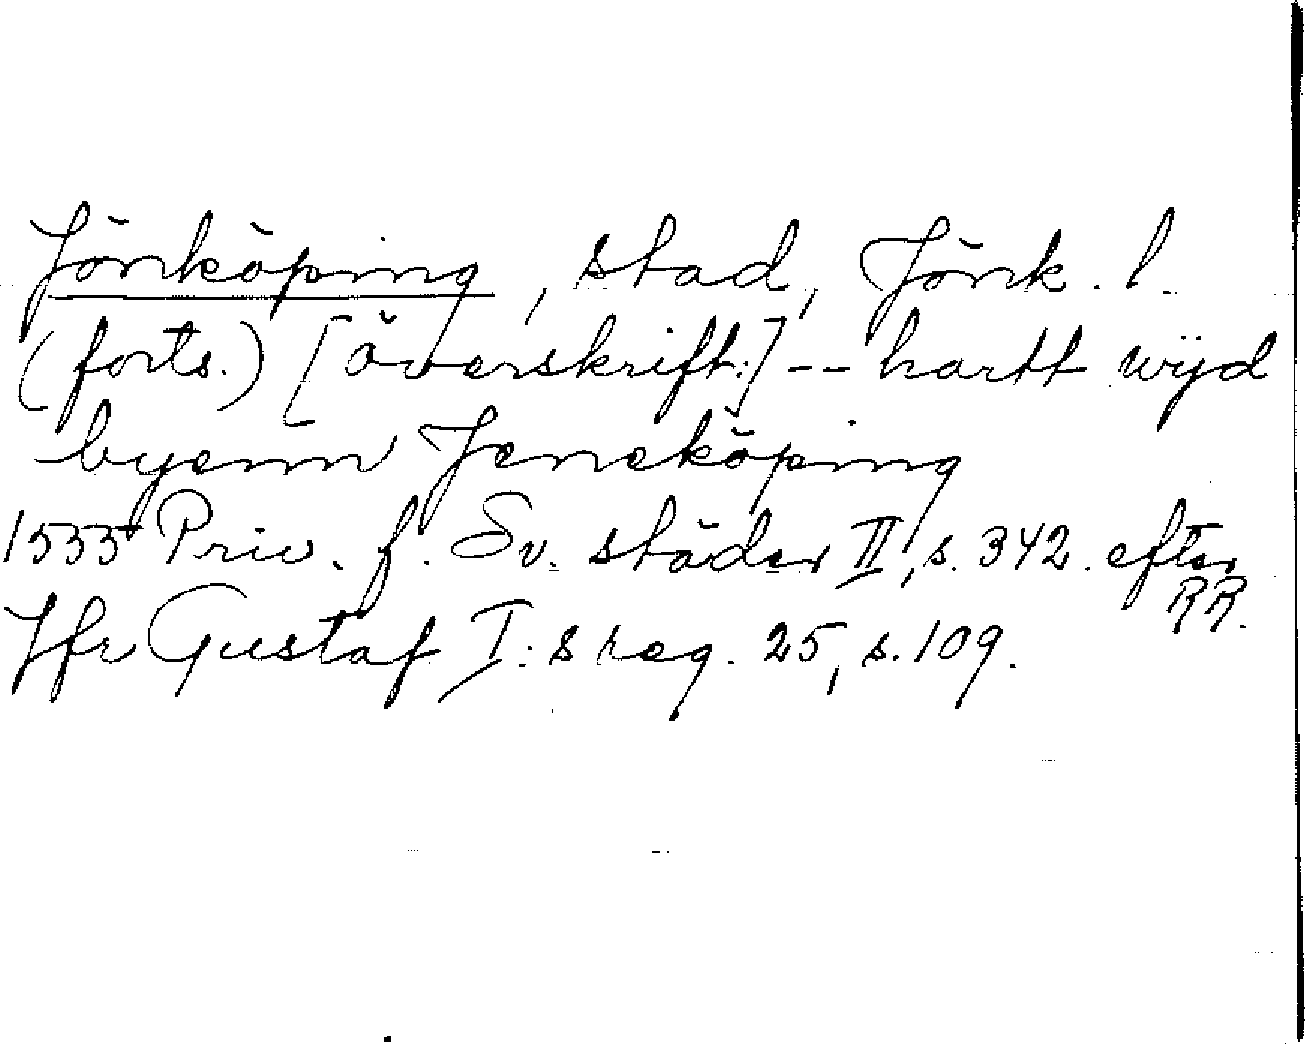 Jönköping, stad, Jönk. l.
(forts.) [överskrift:] -- hartt wijd
byenn Jeneköping
1535 Priv. f. Sv. städer II, s. 342. efter
RR.
Jfr Gustaf I:s reg. 25, s. 109.